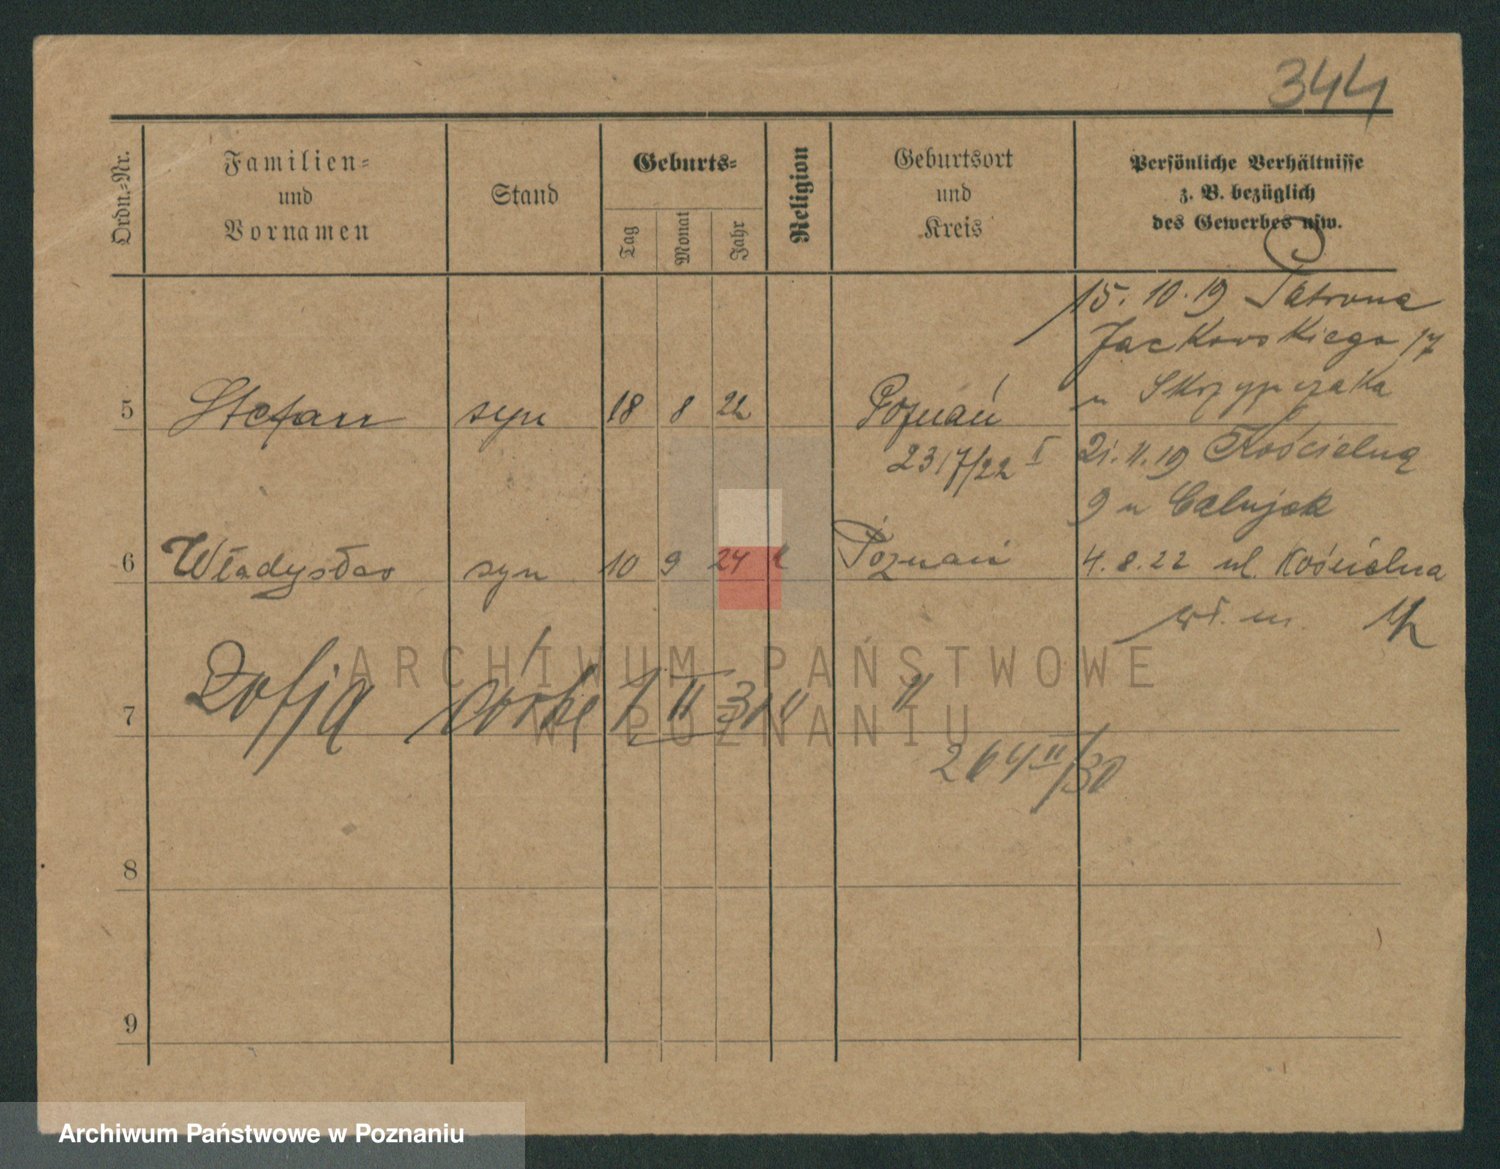 344
Ordn.-Nr.
Familien-
und
Vornamen
Stand
Geburts-
Tag
Monat
Jahr
Religion
Geburtsort
und
Kreis
Persönliche Verhältnisse
z. B. bezüglich
des Gewerbes usw.
15. 10. 19 Patrona
Jackowskiego 17
u Skrzypczaka
5 Stefan syn 18 8 22 Poznań
2317/22 I
21. 11. 19 Kościelną
9 u
6 Władysław syn 10 9 24 k Poznań
4. 8. 22 ul. Kościelna
wł. m.
7 Zofja córka II 30 "
264 II/30
8
9
ARCHIWUM PAŃSTWOWE
W POZNANIU
Archiwum Państwowe w Poznaniu